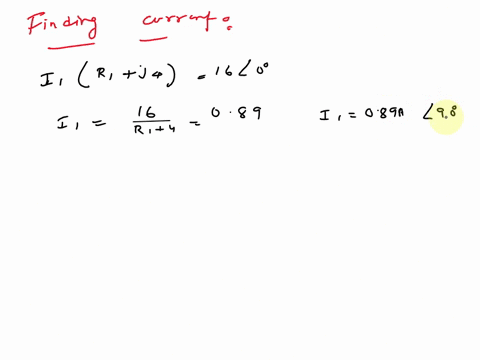 Finding current:
I₁ (R₁ + j4) = 16∠0°
I₁ = 16/(R₁+4) = 0.89 I₁ = 0.89A ∠9.8